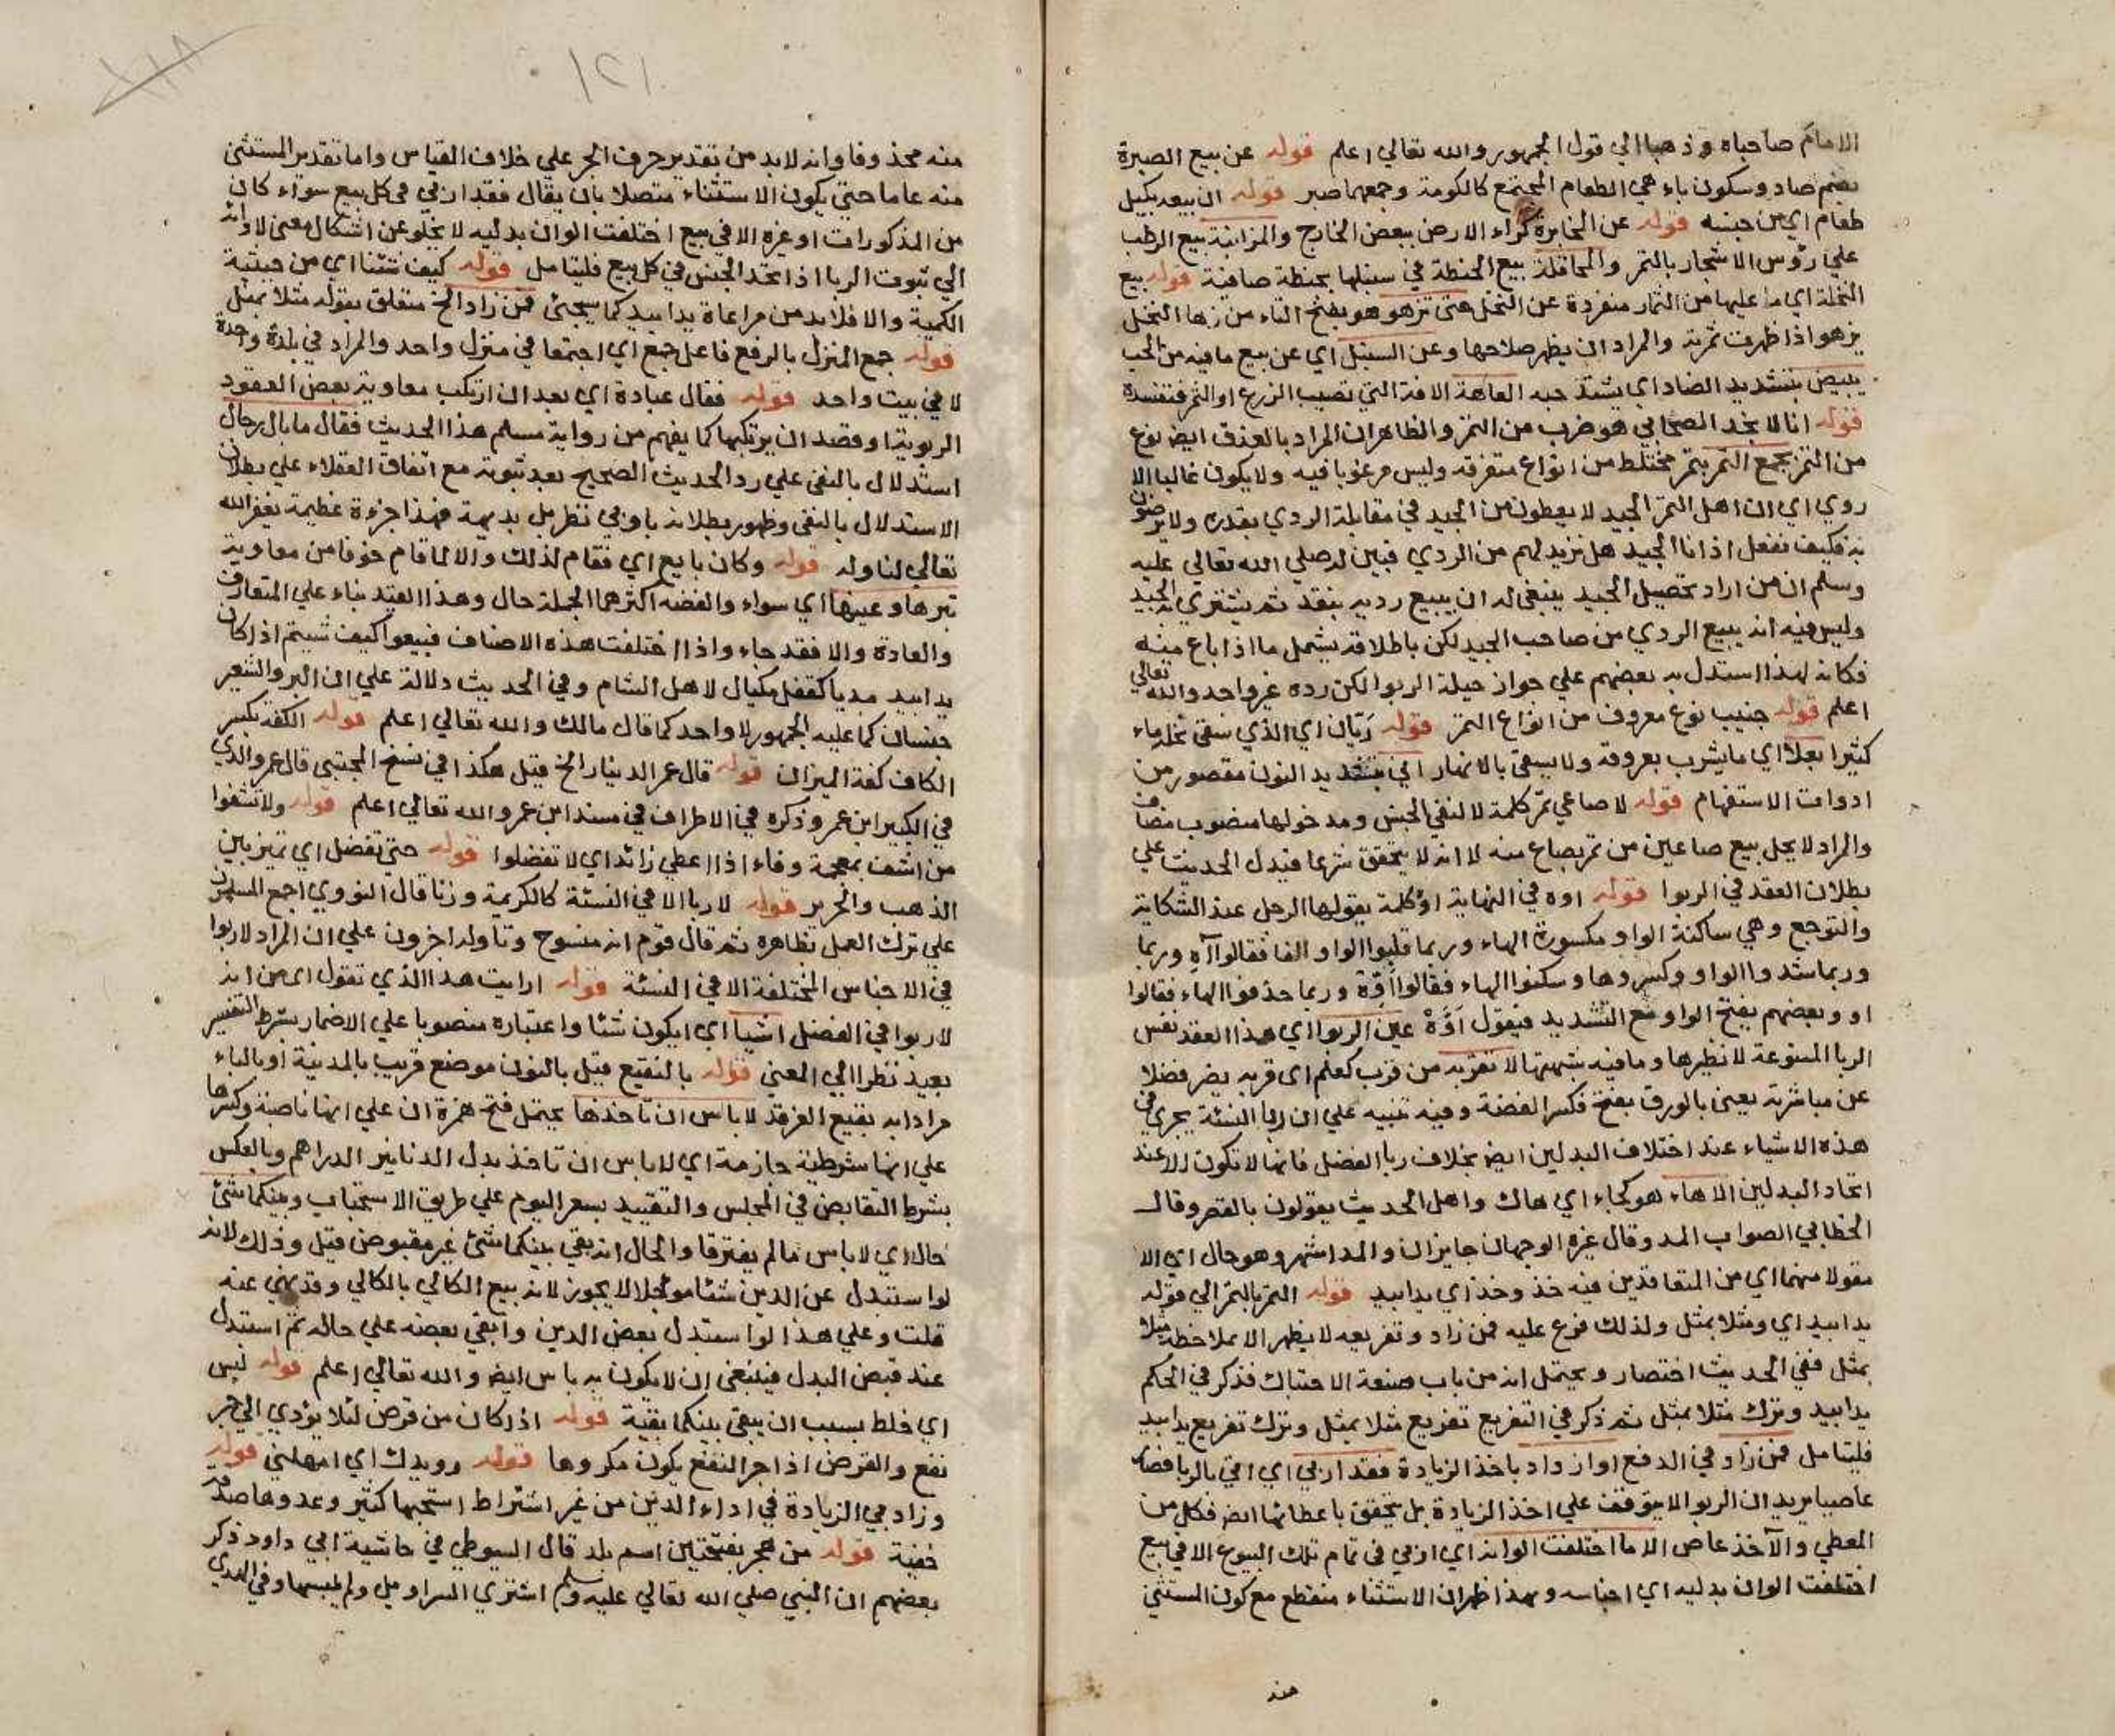 الامام صاحباه وذهبا الي قول الجمهور والله تعالي اعلم قوله عن بيع الصبرة
بضم صاد وسكون باء هي الطعام المجتمع كالكومة وجمعها صبر قوله ان بيعه بكيل
طعام اي من جنسه قوله عن المخابرة كراء الارض ببعض الخارج والمزابنة بيع الرطب
علي رؤس الاشجار بالتمر والمحاقلة بيع الحنطة في سنبلها بحنطة صافية قوله بيع
النخلة اي ما عليها من الثمار منفردة عن النخل حتي تزهو هو بفتح التاء من زها النخل
يزهو اذا ظهرت ثمرته والمراد ان يظهر صلاحها وعن السنبل اي عن بيع ما فيه من الحب
يبيض بتشديد الضاد اي يشتد حبه العاهة الافة التي تصيب الزرع او الثمر فتفسده
قوله انا لا نجد الصيحاني هو ضرب من التمر والظاهر ان المراد بالعذق ايض نوع
من التمر بجمع التمر بتمر مختلط من انواع متفرقة وليس مرغوبا فيه ولا يكون غالبا الا
روي اي ان اهل التمر الجيد لا يعطون من الجيد في مقابلة الردي بقدره ولا يرضون
به فكيف نفعل اذانا الجيد هل نزيد لهم من الردي فبين له صلي الله تعالي عليه
وسلم ان من اراد تحصيل الجيد ينبغي له ان يبيع رديه بنقد ثم يشتري به الجيد
وليس فيه انه يبيع الردي من صاحب الجيد لكن باطلاقه يشمل ما اذا باع منه
فكانه لهذا استدل به بعضهم علي جواز حيلة الربوا لكن رده غير واحد والله تعالي
اعلم قوله جنيب نوع معروف من انواع التمر قوله ريّان اي الذي سقي نخله ماء
كثيرا بعلا اي ما يشرب بعروقه ولا يسقي بالانهار اني بتشديد النون مقصور من
ادوات الاستفهام قوله لا صاعي تمر كلمة لا لنفي الجنس ومدخولها منصوب مضاف
والمراد لا يحل بيع صاعين من تمر بصاع منه لا انه لا يتحقق شرعا فيدل الحديث علي
بطلان العقد في الربوا قوله اوه في النهاية اوّ كلمة يقولها الرجل عند الشكاية
والتوجع وهي ساكنة الواو مكسورة الهاء وربما قلبوا الواو الفا فقالوا آهِ وربما
وربما شددوا الواو وكسروها وسكنوا الهاء فقالوا اوّه وربما حذفوا الهاء فقالوا
او وبعضهم يفتح الواو مع التشديد فيقول اَوَّهْ عين الربوا اي هذا العقد نفس
الربا الممنوعة لا نظيرها وما فيه شبهتها لا تقربه من قرب كعلم اي قربه يضر فضلا
عن مباشرته يعني بالورق بفتح فكسر الفضة وفيه تنبيه علي ان ربا النسئة يجري في
هذه الاشياء عند اختلاف البدلين ايض بخلاف ربا الفضل فانها لا تكون الا عند
اتحاد البدلين الا هاء هو كجاء اي هاك واهل الحديث يقولون بالقصر وقال
الخطابي الصواب المد وقال غيره الوجهان جايزان والمد اشهر وهو حال اي الا
مقولا منهما اي من المتعاقدين فيه خذ وخذ اي يدا بيد قوله التمر بالتمر الي قوله
يدا بيد اي ومثلا بمثل ولذلك فرع عليه فمن زاد وتفريعه لا يظهر الا بملاحظة مثلا
بمثل ففي الحديث اختصار ويحتمل انه من باب صنعة الاحتباك فذكر في الحكم
يدا بيد وترك مثلا بمثل ثم ذكر في التفريع تفريع مثلا بمثل وترك تفريع يدا بيد
فليتامل فمن زاد في الدفع او ازداد باخذ الزيادة فقد اربي اي اتي بالربا فصار
عاصيا يريد ان الربو لا يتوقف علي اخذ الزيادة بل يتحقق باعطائها ايض فكل من
المعطي والآخذ عاص الا ما اختلفت الوانه اي اربي في تمام تلك البيوع الا في بيع
اختلفت الوان بدليه اي اجناسه وبهذا ظهر ان الاستثناء منقطع مع كون المستثني
منه
١٢١
منه محذوفا وانه لابد من تقدير حرف الجر علي خلاف القياس واما تقدير المستثني
منه عاما حتي يكون الاستثناء متصلا بان يقال فقد اربي في كل بيع سواء كان
من المذكورات او غيره الا في بيع اختلفت الوان بدليه لا يخلو عن اشكال معني لا وانه
الي ثبوت الربا اذا اتحد الجنس في كل بيع فليتامل قوله كيف شئنا اي من حيثية
الكمية والا فلابد من مراعاة يدا بيد كما سيجئ فمن زاد الخ متعلق بقوله مثلا بمثل
قوله جمع المنزل بالرفع فاعل جمع اي اجتمعا في منزل واحد والمراد في بلدة واحدة
لا في بيت واحد قوله فقال عبادة اي بعد ان ارتكب معاوية بعض العقود
الربوية او قصد ان يرتكبها كما يفهم من رواية مسلم هذا الحديث فقال ما بال رجال
استدلال بالنفي علي رد الحديث الصحيح بعد ثبوته مع اتفاق العقلاء علي بطلان
الاستدلال بالنفي وظهور بطلانه بادني نظر بل بديهة فهذا جزءة عظيمة يغفر الله
تعالي لنا وله قوله وكان بايع اي فقام لذلك والا لما قام خوفا من معاوية
تبرها وعينها اي سواء والفضه اكثرهما الجملة حال وهذا القيد بناء علي المتعارف
والعادة والا فقد جاء واذا اختلفت هذه الاصناف فبيعوا كيف شيتم اذا كان
يدا بيد مديا كقفل مكيال لاهل الشام وفي الحديث دلالة علي ان البر والشعير
جنسان كما عليه الجمهور لا واحد كما قال مالك والله تعالي اعلم قوله الكفة بكسر
الكاف كفة الميزان قوله قال عمر الدينار الخ قيل هكذا في نسخ المجتبي قال عمرو الذي
في الكبير ابن عمر وذكره في الاطراف في مسند ابن عمر والله تعالي اعلم قوله ولا تشفوا
من اشف بمعجمة وفاء اذا اعطي زائد اي لا تفضلوا قوله حتي تفضل اي تميز بين
الذهب والخرز قوله لا ربا الا في النسئة كالكريمة وزنا قال النووي اجمع المسلمون
علي ترك العمل بظاهره ثم قال قوم انه منسوخ وتاوله اخرون علي ان المراد لا ربوا
في الاجناس المختلفة الا في النسئة قوله ارايت هذا الذي تقول اي من انه
لا ربوا في الفضل اشيأ اي ايكون شئا واعتباره منصوبا علي الاضمار بشرط التفسير
بعيد نظرا الي المعني قوله بالنقيع قيل بالنون موضع قريب بالمدينة او بالباء
مرادا به بقيع الغرقد لا باس ان تاخذها يحتمل فتح همزة ان علي انها ناصبة وكسرها
علي انها شرطية جازمة اي لا باس ان تاخذ بدل الدنانير الدراهم وبالعكس
بشرط التقابض في المجلس والتقييد بسعر اليوم علي طريق الاستحباب وبينكما شئ
حال اي لا باس مالم يفترقا والحال انه بقي بينكما شئ غير مقبوض قيل وذلك لانه
لو استبدل عن الدين شئا موجلا لا يجوز لانه بيع الكالي بالكالي وقد نهي عنه
قلت وعلي هذا لو استبدل بعض الدين وابقي بعضه علي حاله ثم استبدل
عند قبض البدل فينبغي ان لا يكون به باس ايض والله تعالي اعلم قوله لبس
اي خلط بسبب ان يبقي بينكما بقية قوله اذا كان من قرض لئلا يؤدي الي جر
نفع والقرض اذا جر النفع يكون مكروها قوله رويدك اي امهلني قوله
وزادني الزيادة في اداء الدين من غير اشتراط استحبها كثير وعدوها صدقة
خفية قوله من هجر بفتحتين اسم بلد قال السيوطي في حاشية ابي داود ذكر
بعضهم ان النبي صلي الله تعالي عليه وسلم اشتري السراويل ولم يلبسها وفي الهدي